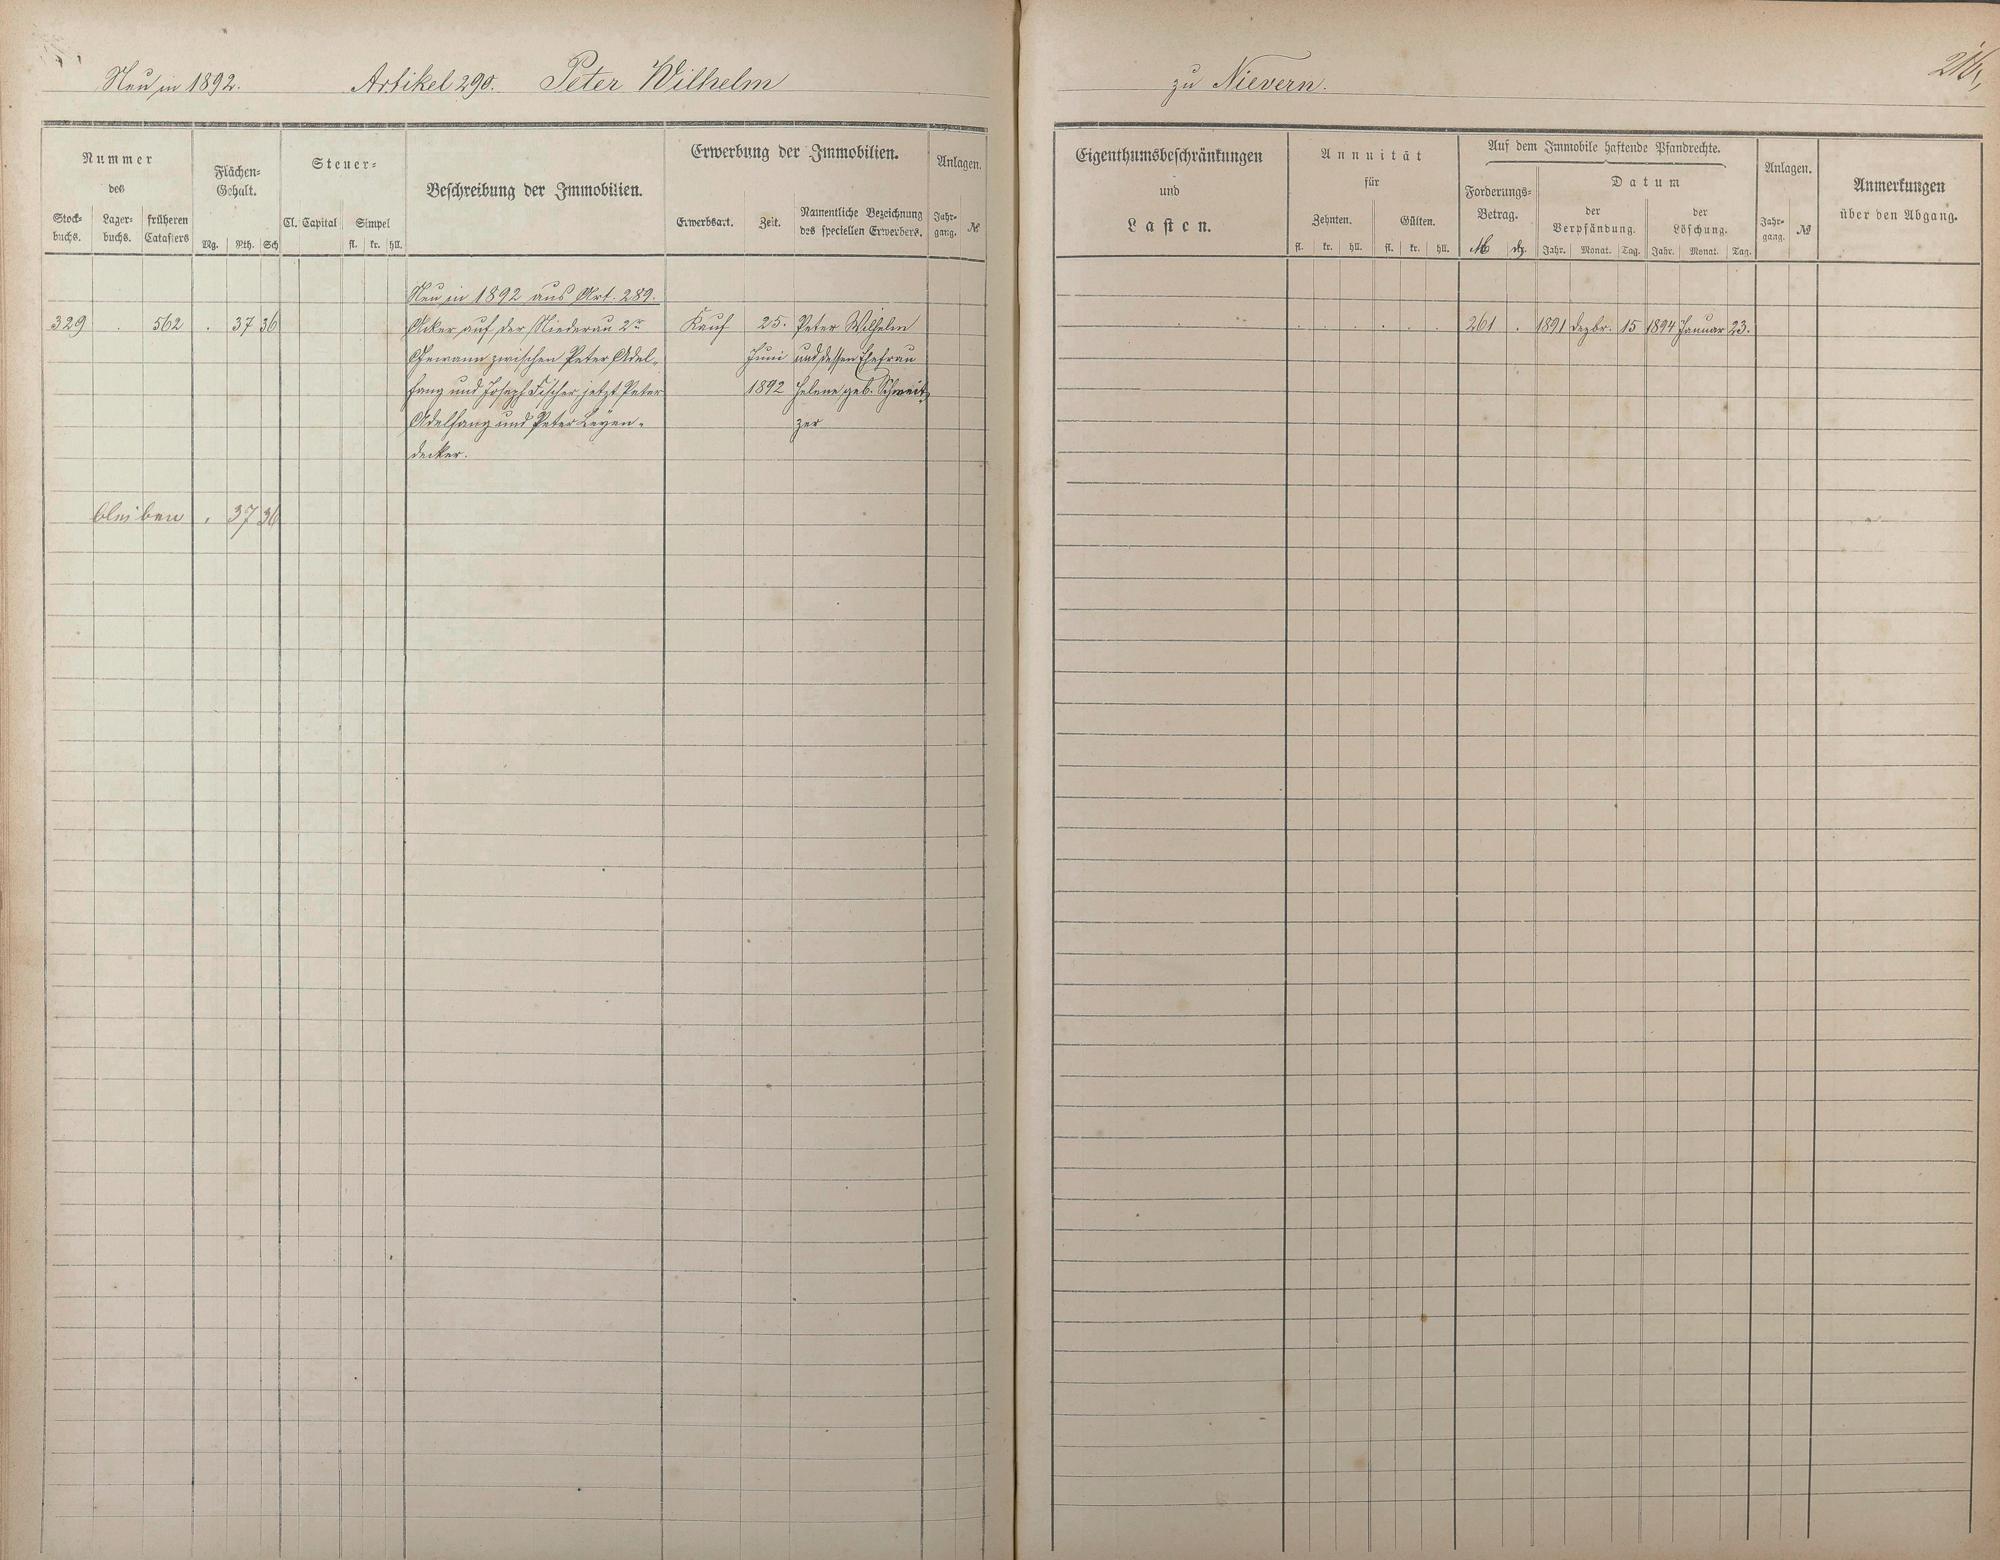 Neu in 1892. Artikel 290. Peter Wilhelm
Nummer
des
Stock-
buchs.
Lager-
buchs.
früheren
Catasters
Flächen-
Gehalt.
Mg. Rth. Sch
Steuer-
Cl. Capital Simpel
fl. kr. hll.
Beschreibung der Immobilien.
Erwerbung der Immobilien.
Erwerbsart. Zeit.
Namentliche Bezeichnung
des speciellen Erwerbers.
Anlagen.
Jahr-
gang. №
Neu in 1892 aus Art. 289.
329 . 562 . 37 36 Acker auf der Niederau 2r Kauf 25. Peter Wilhelm
Gewann zwischen Peter Adel- Juni und dessen Ehefrau
fang und Joseph Fischer, jetzt Peter 1892 Helene geb. Schweit-
Adelfang und Peter Leyen- zer
decker.
bleiben . 37 36
zu Nievern.
Eigenthumsbeschränkungen
und
Lasten.
Annuität
für
Zehnten. Gülten.
fl. kr. hll. fl. kr. hll.
Auf dem Immobile haftende Pfandrechte.
Forderungs-
Betrag.
M
Datum
der
Verpfändung.
Jahr. Monat. Tag.
der
Löschung.
Jahr. Monat. Tag.
Anlagen.
Jahr-
gang. №
Anmerkungen
über den Abgang.
261 . 1891 Dezbr. 15 1894 Januar 23.